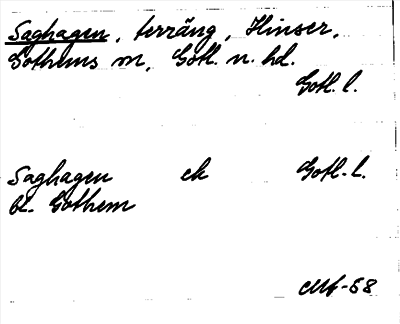 Saghagen, terräng, Hinser,
Gothems sn, Gotl. n. hd.
Gotl. l.
Saghagen ek Gotl. l.
bl. Gothem
-58